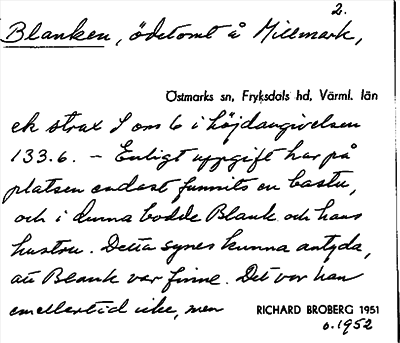 2.
Blanken, ödetomt å Millmark,
Östmarks sn, Fryksdals hd, Värml. län
ek strax S om 6 i höjdangivelsen
133.6. – Enligt uppgift har på
platsen endast funnits en bastu,
och i denna bodde Blank och hans
hustru. Detta synes kunna antyda,
att Blank var finne. Det var han
emellertid icke, men
RICHARD BROBERG 1951
o. 1952